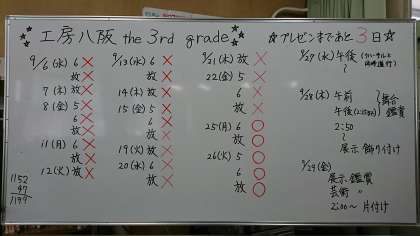 工房八阪 the 3rd grade
☆プレゼンまであと3日☆
9/6(水) 6 ×
放 ×
7(木) 放 ×
8(金) 5 ×
6 ×
放 ×
11(月) 6 ×
放 ×
12(火) 放 ×
1152
47
1199
9/13(水) 6 ×
放 ×
14(木) 放 ×
15(金) 5 ×
6 ×
放 ×
19(火) 放 ×
20(水) 6 ×
放 ×
9/21(木) 放 ×
22(金) 5 ×
6 ×
放 ×
25(月) 6 ○
放 ○
26(火) 5 ○
6 ○
放 ○
9/27(水) 午後
〜
9/28(木) 午前
午後
舞台鑑賞
2:50
〜
展示 飾り付け
9/29(金)
展示 鑑賞
芸術 〃
2:00〜 片付け